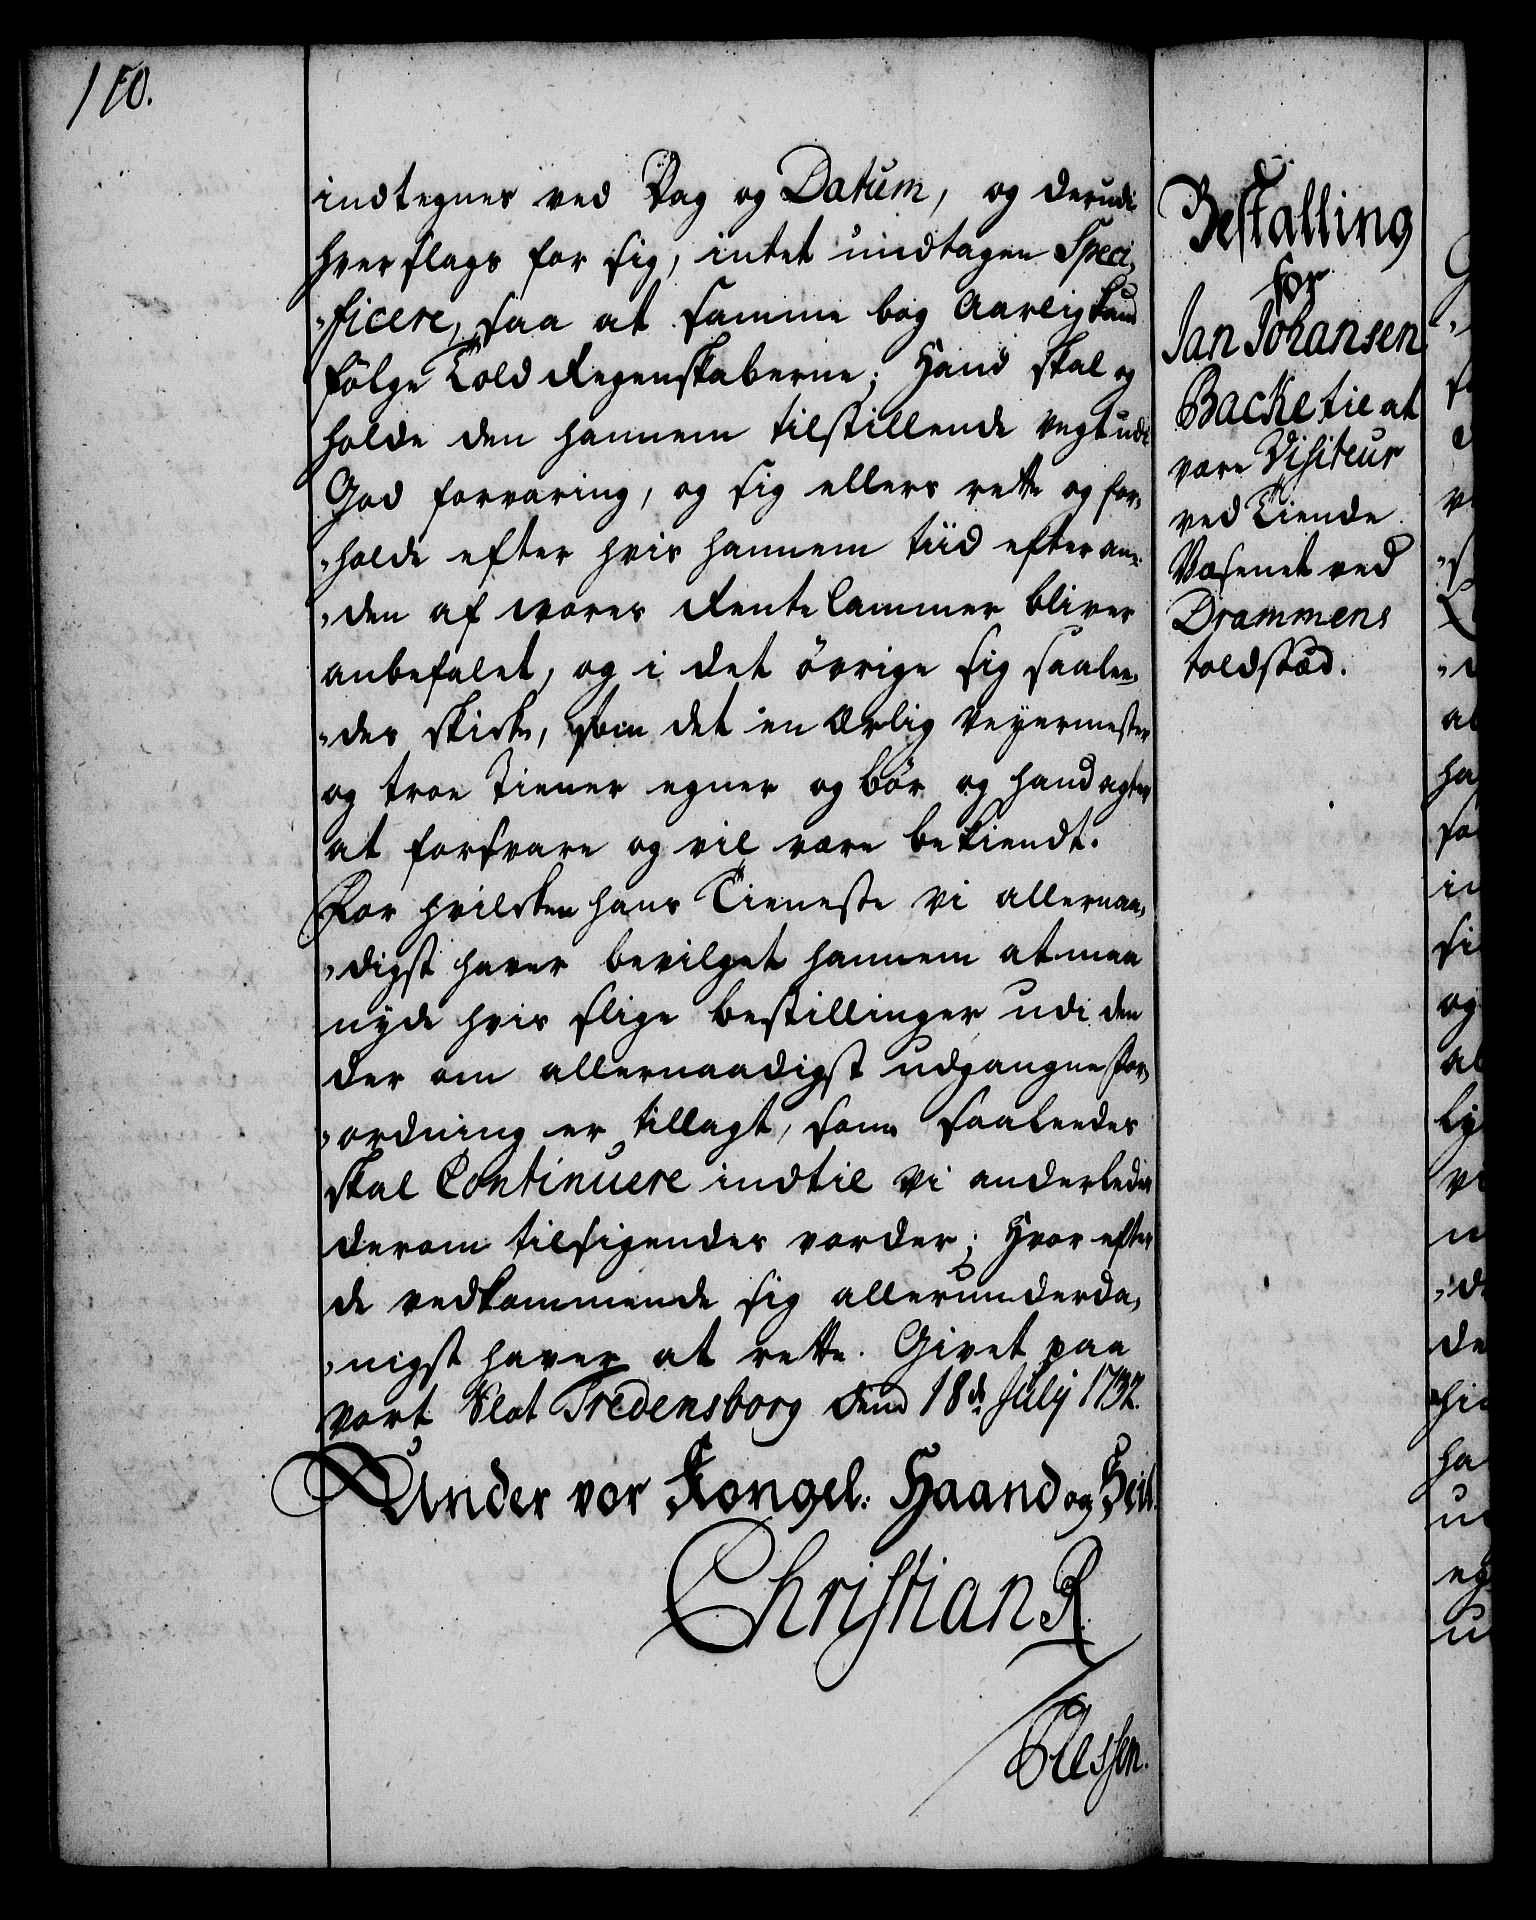 110.
indtegnes ved Dag og Datum, og derudi
hver slags for sig, intet undtagen Speci-
-ficere, saa at samme bog Aarlig kand
følge Told Regenskaberne; Hand skal og
holde den hannem tilstillende vegt udi
God forvaring, og sig ellers rette og for-
-holde efter hvis hannem tiid efter an-
-den af vores Rentekammer bliver
anbefalet, og i det övrige sig saale-
-des skicke, som det en Ærlig Veyermester
og troe Tiener egner og bör og hand agter
at forsvare og vil være bekiendt.
For hvilcken hans Tieneste vi allernaa-
-digst haver bevilget hannem at maa
nyde hvis slige bestillinger udi den
der om allernaadigst udgangne For-
-ordning er tillagt, som saaleedes
skal Continuere indtil vi anderledis
derom tilsigendes vorder; Hvor efter
de vedkommende sig allerunderda-
-nigst haver at rette. Givet paa
vort Slot Fredensborg dend 18de July 1732.
Under vor Kongel: Haand og Seil.
Christian R
Plessen.
Bestalling
for
Jan Johansen
Backe til at
være Visiteur
ved Tiende
Væsenet ved
Drammens
toldstæd.